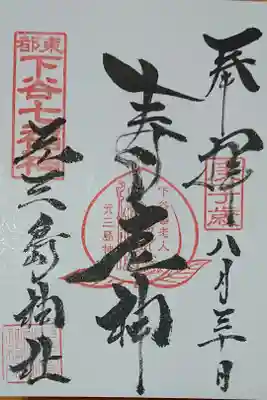 奉拝 八月三十日
寿老神
元三島神社
東都
下谷七福神
下谷 老人
元三島神